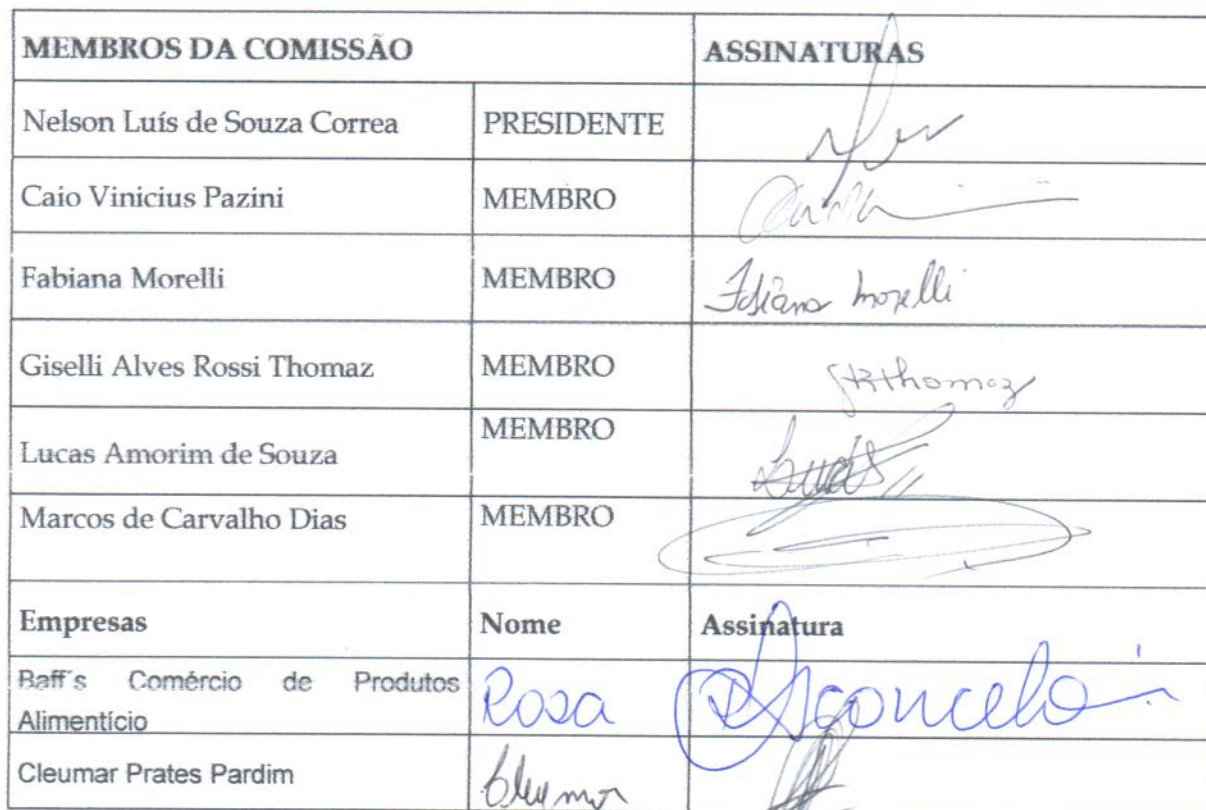 MEMBROS DA COMISSÃO ASSINATURAS
Nelson Luís de Souza Correa PRESIDENTE
Caio Vinicius Pazini MEMBRO
Fabiana Morelli MEMBRO Fabiana Morelli
Giselli Alves Rossi Thomaz MEMBRO GRthomaz
Lucas Amorim de Souza MEMBRO Lucas
Marcos de Carvalho Dias MEMBRO
Empresas Nome Assinatura
Baff´s Comércio de Produtos Rosa
Alimentício
Cleumar Prates Pardim Cleumar